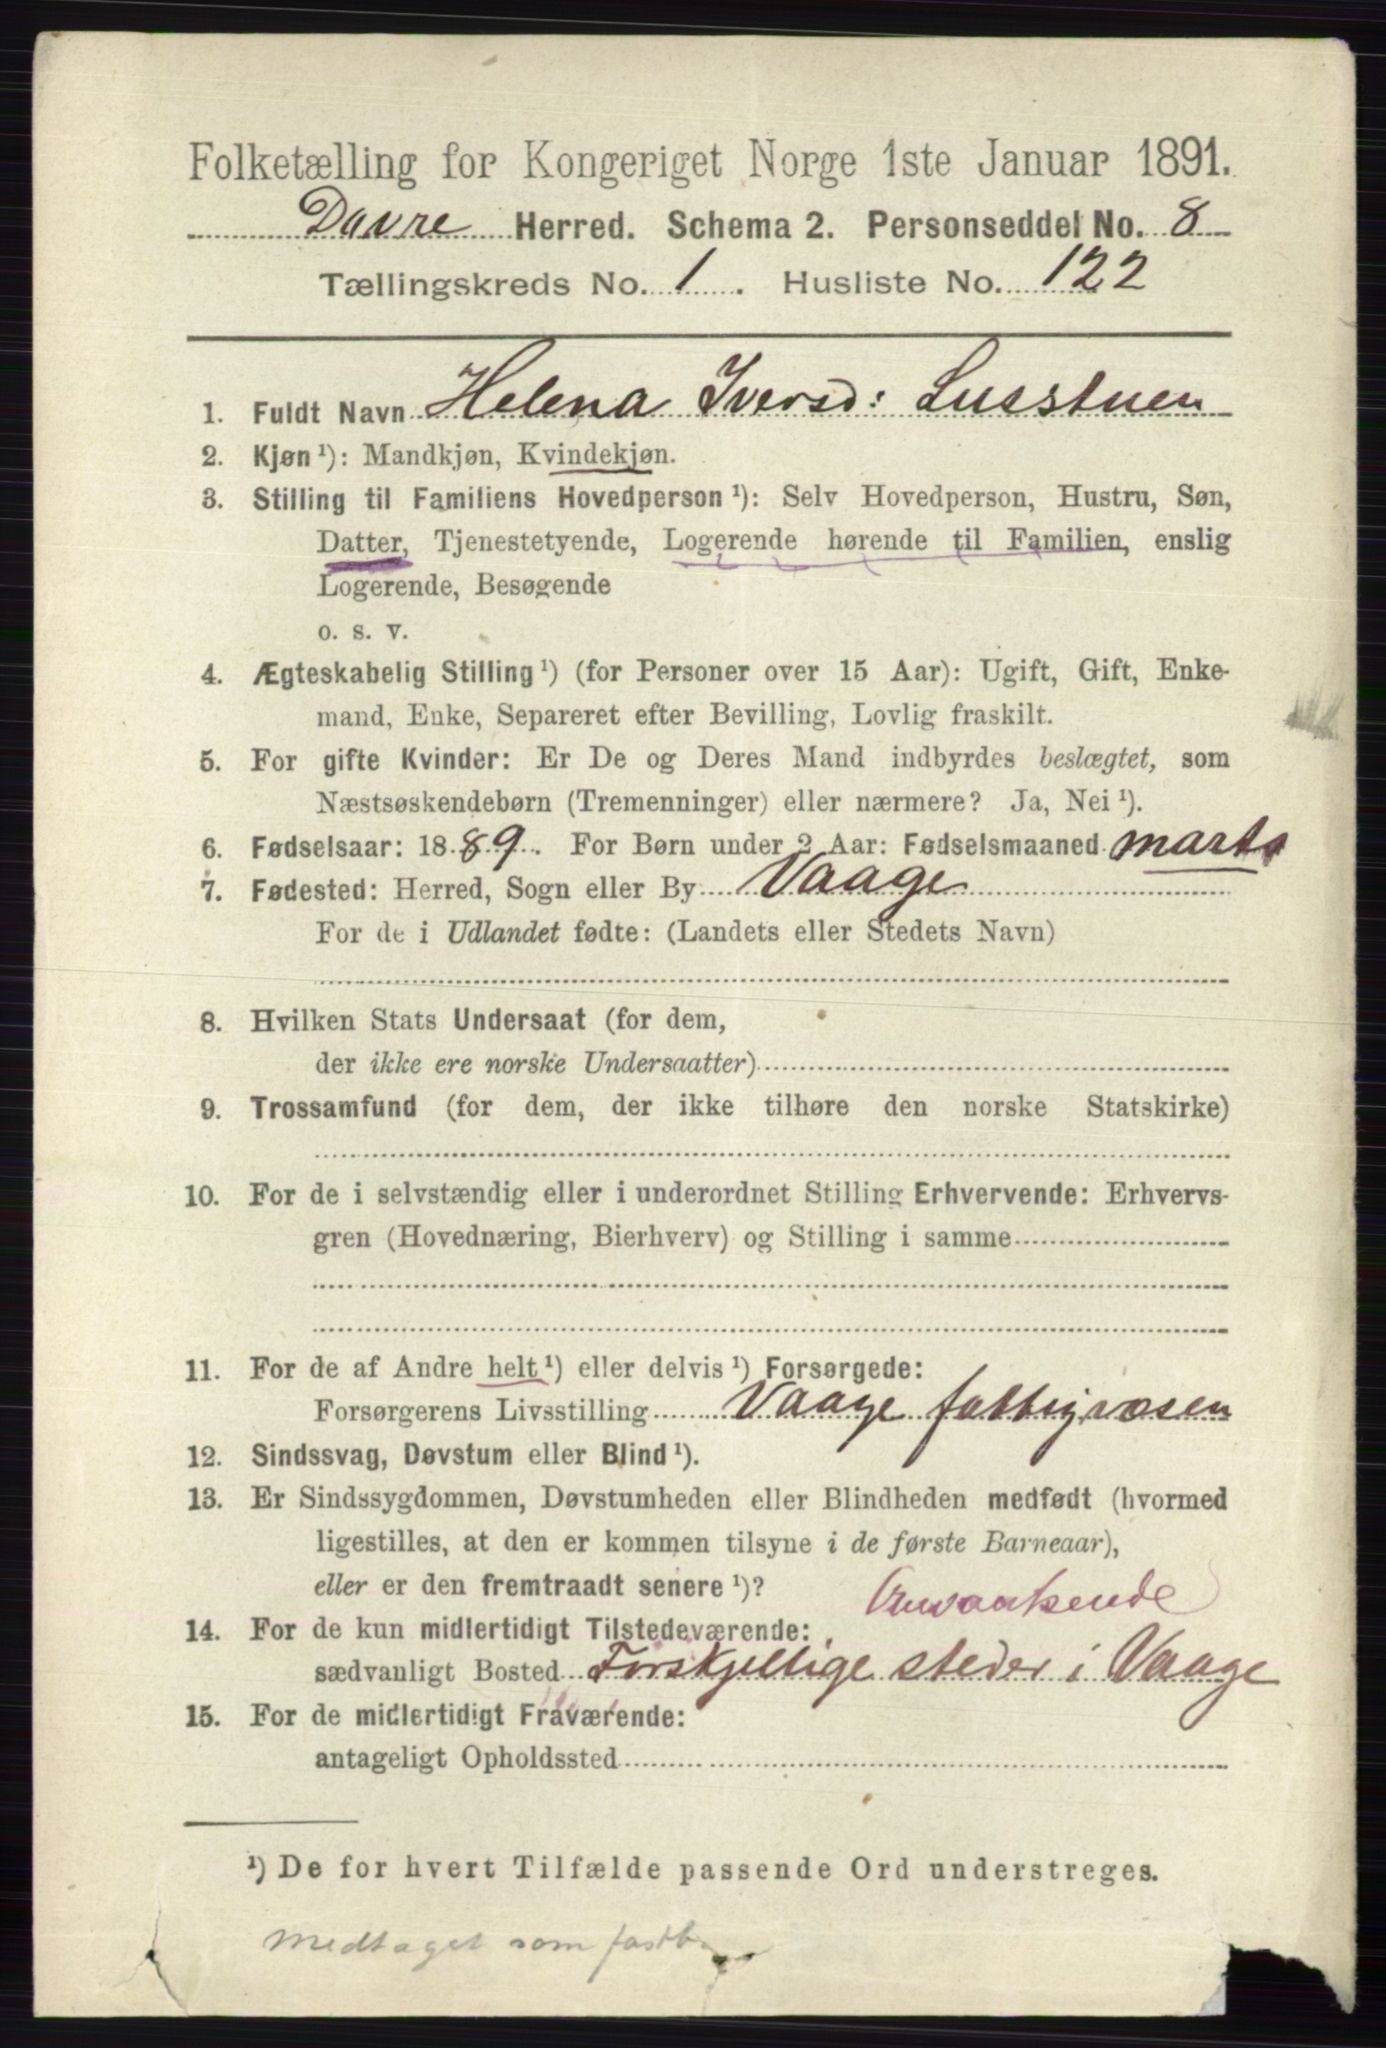 Folketælling for Kongeriget Norge 1ste Januar 1891.
Dovre Herred. Schema 2. Personseddel No. 8
Tællingskreds No. 1. Husliste No. 122
1. Fuldt Navn Helena Iversd: Lusstuen
2. Kjøn ¹): Mandkjøn, Kvindekjøn.
3. Stilling til Familiens Hovedperson ¹): Selv Hovedperson, Hustru, Søn,
Datter, Tjenestetyende, Logerende hørende til Familien, enslig
Logerende, Besøgende
o. s. v.
4. Ægteskabelig Stilling ¹) (for Personer over 15 Aar): Ugift, Gift, Enke-
mand, Enke, Separeret efter Bevilling, Lovlig fraskilt.
5. For gifte Kvinder: Er De og Deres Mand indbyrdes beslægtet, som
Næstsøskendebørn (Tremenninger) eller nærmere? Ja, Nei ¹).
6. Fødselsaar: 1889. For Børn under 2 Aar: Fødselsmaaned marts
7. Fødested: Herred, Sogn eller By Vaage
For de i Udlandet fødte: (Landets eller Stedets Navn)
8. Hvilken Stats Undersaat (for dem,
der ikke ere norske Undersaatter)
9. Trossamfund (for dem, der ikke tilhøre den norske Statskirke)
10. For de i selvstændig eller i underordnet Stilling Erhvervende: Erhvervs-
gren (Hovednæring, Bierhverv) og Stilling i samme
11. For de af Andre helt ¹) eller delvis ¹) Forsørgede:
Forsørgerens Livsstilling Vaage fattigvæsen
12. Sindssvag, Døvstum eller Blind ¹).
13. Er Sindssygdommen, Døvstumheden eller Blindheden medfødt (hvormed
ligestilles, at den er kommen tilsyne i de første Barneaar),
eller er den fremtraadt senere ¹)?
14. For de kun midlertidigt Tilstedeværende:
sædvanligt Bosted Forskjellige steder i Vaage
15. For de midlertidigt Fraværende:
antageligt Opholdssted
¹) De for hvert Tilfælde passende Ord understreges.
Medtaget som